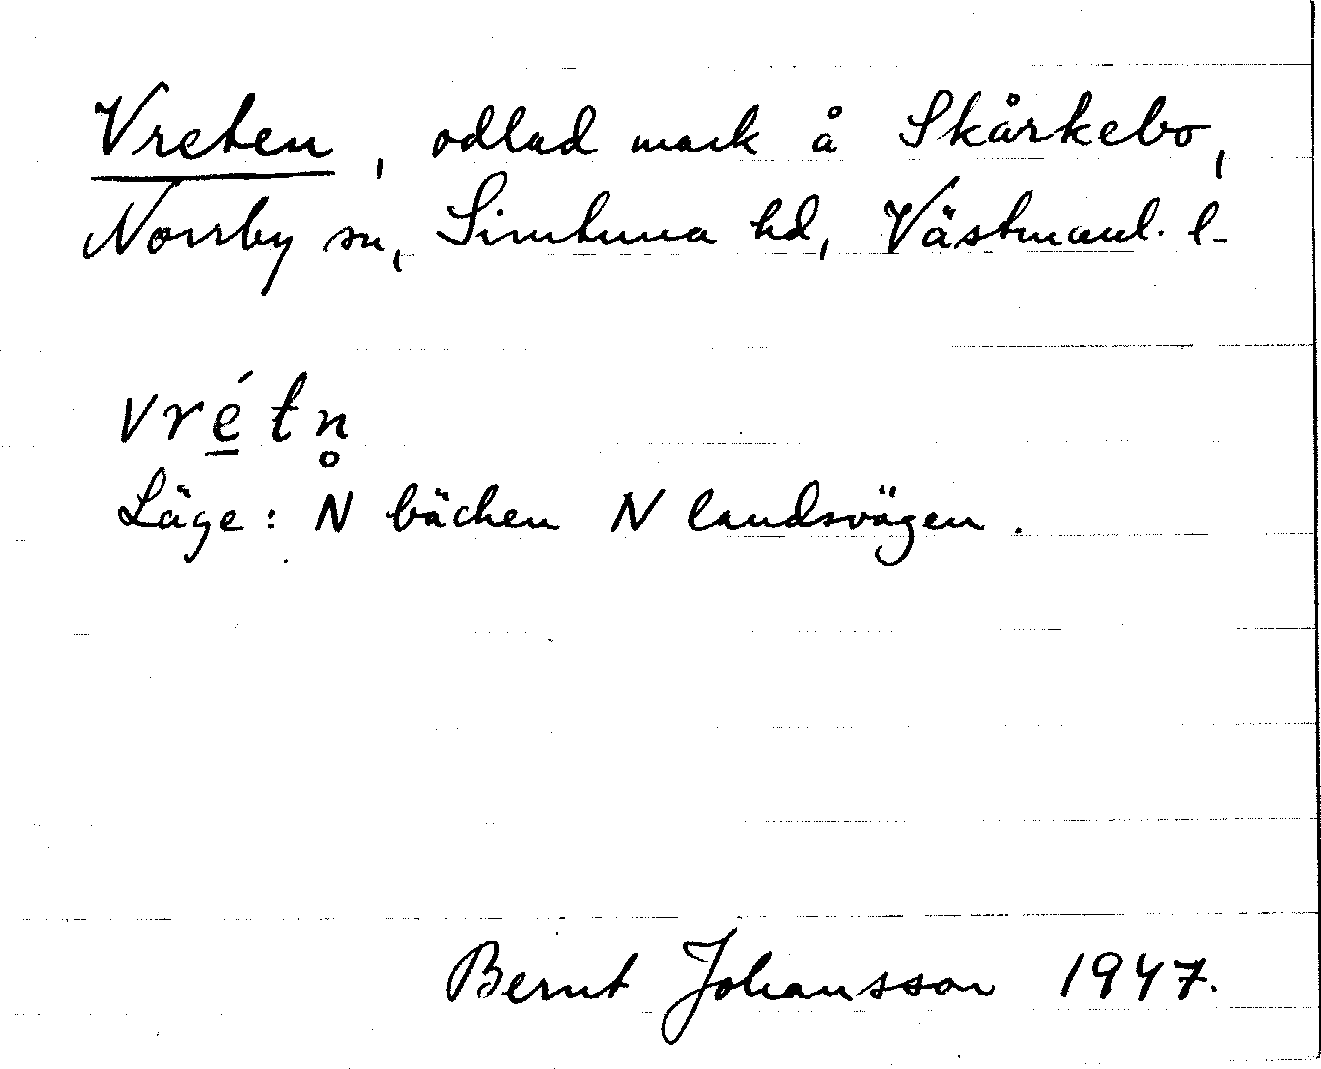 Vreten, odlad mark å Skårkebo,
Norrby sn, Simtuna hd, Västmanl. l.
vré̱tn̥
Läge: N bäcken N landsvägen.
Bernt Johansson 1947.